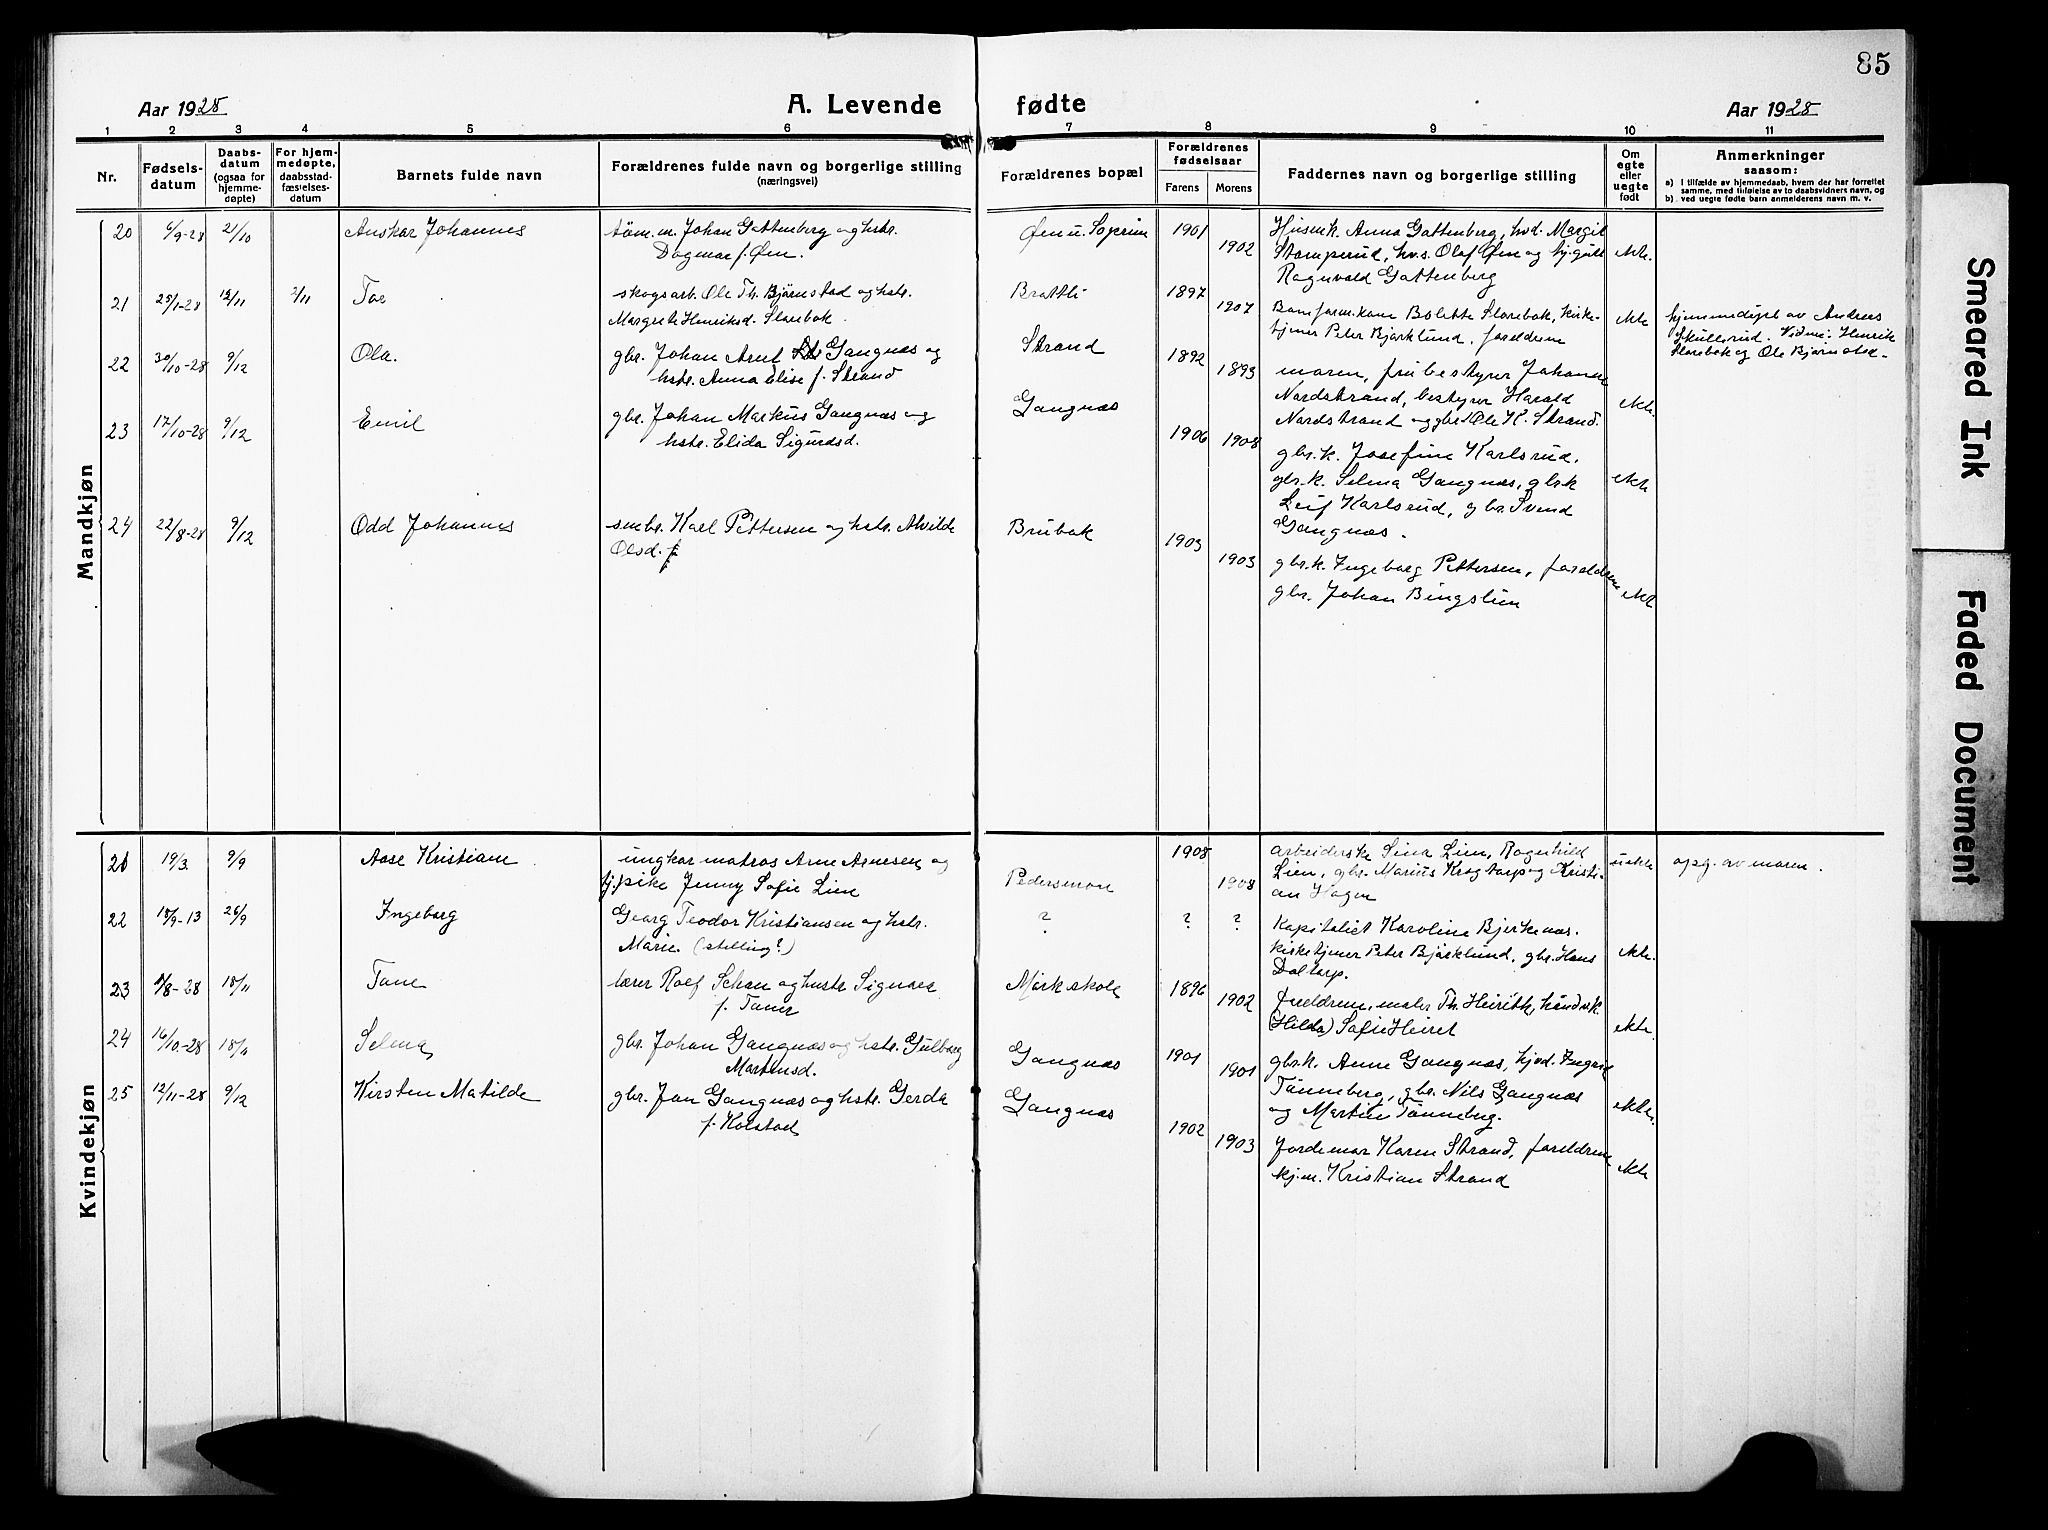 85
Aar 1928
A. Levende fødte
Aar 1928
1 2 3 4 5 6 7 8 9 10 11
Nr.
Fødsels-
datum
Daabs-
datum
(ogsaa for
hjemme-
døpte)
For hjem-
medøpte,
daabsstad-
fæstelses-
datum
Barnets fulde navn
Forældrenes fulde navn og borgerlige stilling
(næringsvei)
Forældrenes bopæl
Forældrenes
fødselsaar
Farens Morens
Faddernes navn og borgerlige stilling
Om
egte
eller
uegte
født
Anmerkninger
saasom:
a) I tilfælde av hjemmedaab, hvem der har forrettet
samme, med tilføielse av to daabsvidners navn, og
b) ved uegte fødte barn anmelderens navn m. v.
Mandkjøn
20 6/9-28 21/10 Anskar Johannes
tøm.m. Johan Gattenberg og hstr.
Dagmar f. Øen.
Øen u. Soprim 1901 1902
Husm.k. Anna Gattenberg, hvd. Margit
Stamperud, hv.s. Olaf Øen og hj.gutt
Ragnvald Gattenberg
ekte.
21 25/1-28 18/11 2/11 Tor
skogsarb. Ole Th. Bjørnstad og hstr.
Margrete Henriksd. Storebok.
Brattli 1897 1907
Barnform.kone Bolette Storebok, kirke-
tjener Peter Bjørklund, foreldrene
ekte
hjemmedøpt av Andreas
Skullerud. Vidner: Henrik
Storebok og Ole Bjørnstad.
22 30/10-28 9/12 Ola.
gbr. Johan Arnt Gangnæs og
hstr. Anna Elise f. Strand
Strand 1892 1893
moren, fru bestyrer Johanne
Nordstrand, bestyrer Harald
Nordstrand og gbr. Ole K. Strand.
ekte.
23 17/10-28 9/12 Emil
gbr. Johan Markus Gangnæs og
hstr. Elida Sigurdsd.
Gangnæs 1906 1908
gbr.k. Josefine Karlsrud,
gbr.k. Selma Gangnæs, gbr.
Leif Karlsrud, gbr. Svend
Gangnæs.
ekte
24 22/8-28 9/12 Odd Johannes
smbr. Karl Pettersen og hstr. Alvilde
Olsd.
Brubak 1903 1903
gbr.k. Ingeborg Pettersen, foreldrene
gbr. Johan Bingslien
ekte
Kvindekjøn
21 19/3. 9/9 Aase Kristiane
ungkar matros Arne Arnesen og
tj.pike Jenny Sofie Lien
Pedersmoen 1908 1908
arbeiderske Sina Lien, Ragnhild
Lien, gbr. Marius Krogtorp og Kristi-
an Hagen
uekte
opg. av moren.
22 18/9-13 26/9 Ingeborg
Georg Teodor Kristiansen og hstr.
Marie. (stilling?)
? ? ?
Kapitalist Karoline Bjerkenæs.
kirketjener Peter Bjørklund, gbr. Hans
Daltorp.
ekte.
23 8/8-28 18/11 Tone
lærer Rolf Schou og hustr. Signora
f. Taner
Mørk skole 1896 1902
foreldrene, maler Th.
(Hilda) Sofie Heiret
ekte
24 16/10-28 18/11 Selma
gbr. Johan Gangnæs og hstr. Gulborg
Martinsd.
Gangnæs 1901 1901
gbr.k. Anne Gangnæs, hjvd. Ingrid
Tønneberg, gbr. Nils Gangnæs
og Martin Tønneberg.
ekte.
25 12/11-28 9/12 Kirsten Matilde
gbr. Jon Gangnæs og hstr. Gerda
f. Kolstad
Gangnæs 1902 1903
Jordemor Karen Strand, foreldrene
kj.m. Kristian Strand
ekte
Smeared Ink
Faded Document